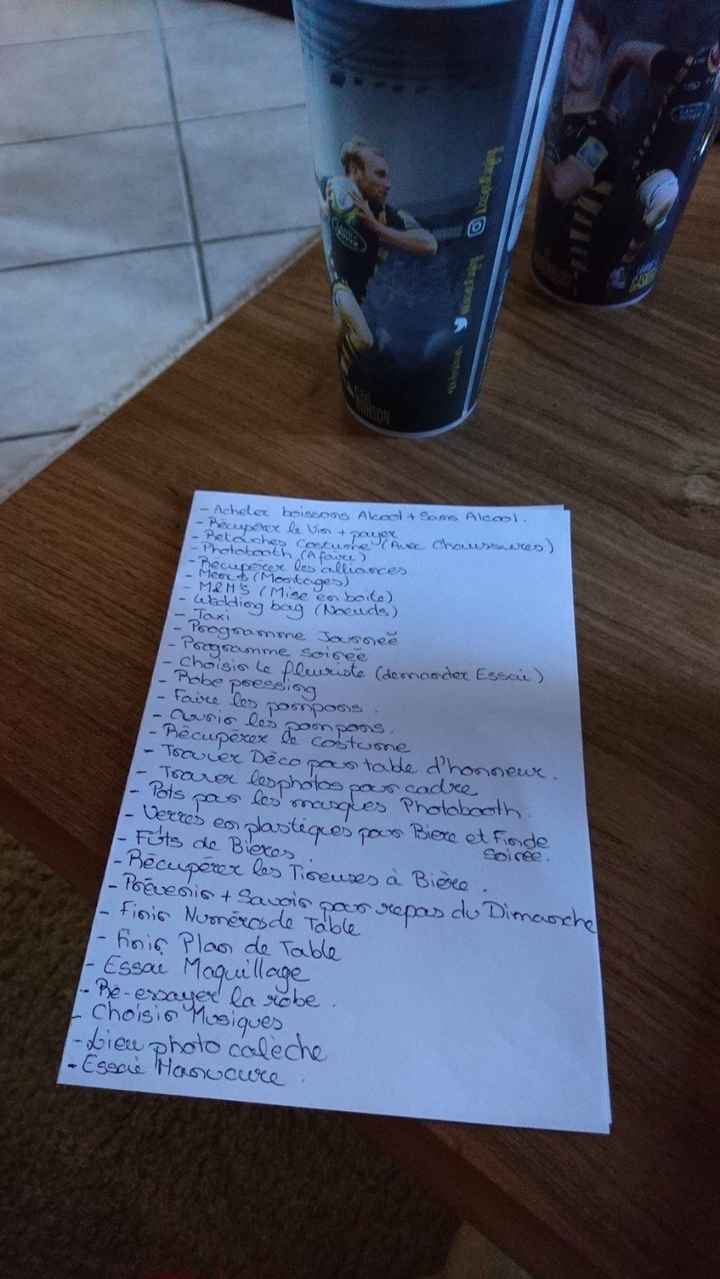 - Acheter boissons Alcool + Sans Alcool.
- Récupérer le Vin + payer
- Retouches Costume (Avec Chaussures)
- Photobooth (A faire)
- Récupérer les alliances
- Menus (Montages)
- M&M'S (Mise en boite)
- Wedding bag (Noeuds)
- Taxi
- Programme Journeé
- Programme soireé
- Choisir le fleuriste (demander Essai)
- Robe pressing
- Faire les pompons.
- Ouvrir les pompons.
- Récupérer le costume
- Trouver Déco pour table d'honneur.
- Trouver les photos pour cadre
- Pots pour les masques Photobooth.
- Verres en plastiques pour Bière et Fin de
soirée.
- Fûts de Bières.
- Récupérer les Tireuses à Bière.
- Prévenir + Savoir pour repas du Dimanche
- Finir Numéros de Table
- Finir Plan de Table
- Essai Maquillage
- Re-essayer la robe.
- Choisir Musiques
- Lieu photo calèche
- Essai Manucure.